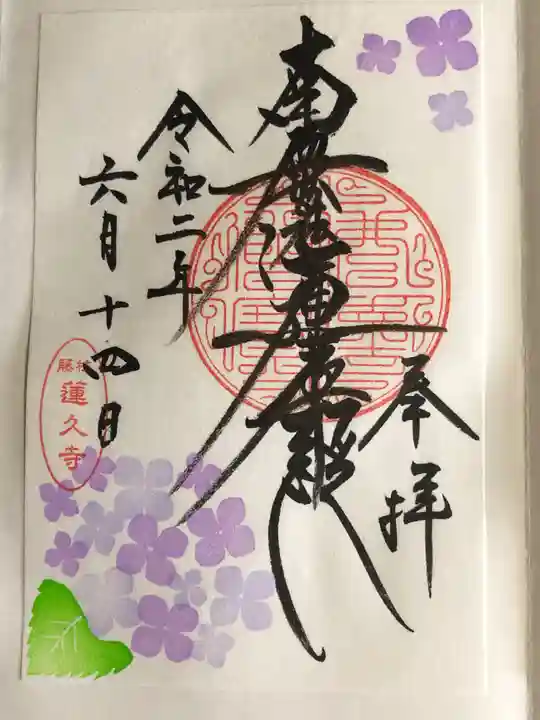 奉拝
南無妙法蓮華経
令和二年
六月十四日
蓮久寺